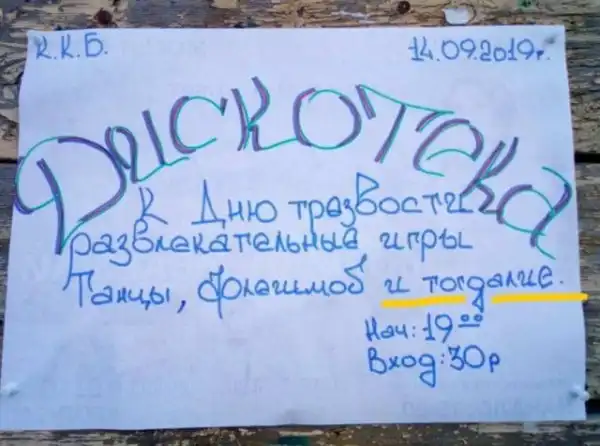 К.К.Б. 14.09.2019г.
Дискотека
К Дню трезвости
развлекательные игры
Танцы, флешмоб и тогдалие.
Нач: 19 00
Вход: 30р